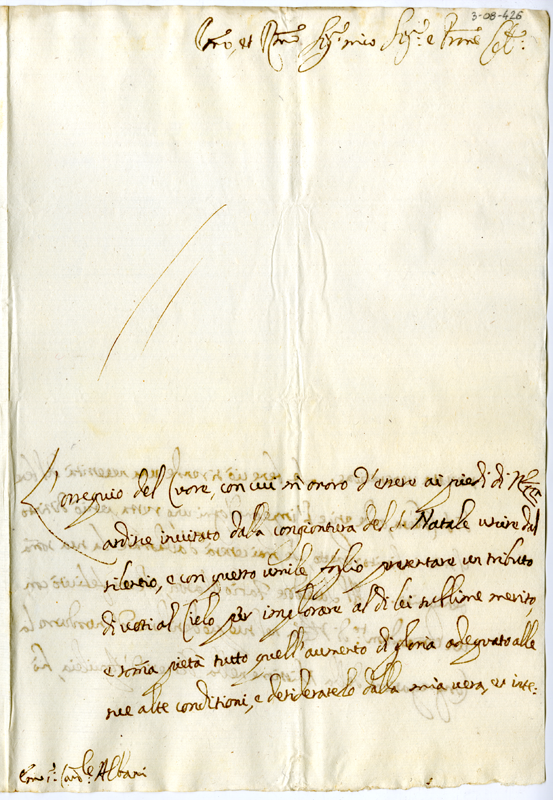 3-08-426
Emo, et Rmo Sig.r mio Sig.r e Prone Col.mo
L'ossequio del Cuore, con cui m'onoro d'essere ai piedi di V. Em.za
ardisce invitato dalla congiontura del S. Natale uscire dal
silenzio, e con questo umile foglio presentare un tributo
di voti al Cielo per implorare al di lei sublime merito
e somma pietà tutto quell'aumento di gloria adeguato alle
sue alte conditioni, e desideratelo dalla mia vera, et inte-
Em.o S.r Card.le Albani